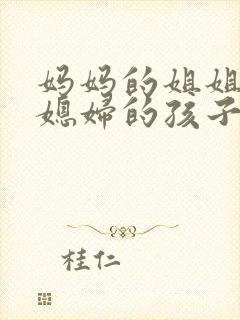 妈妈的姐姐
媳妇的孩子
桂仁